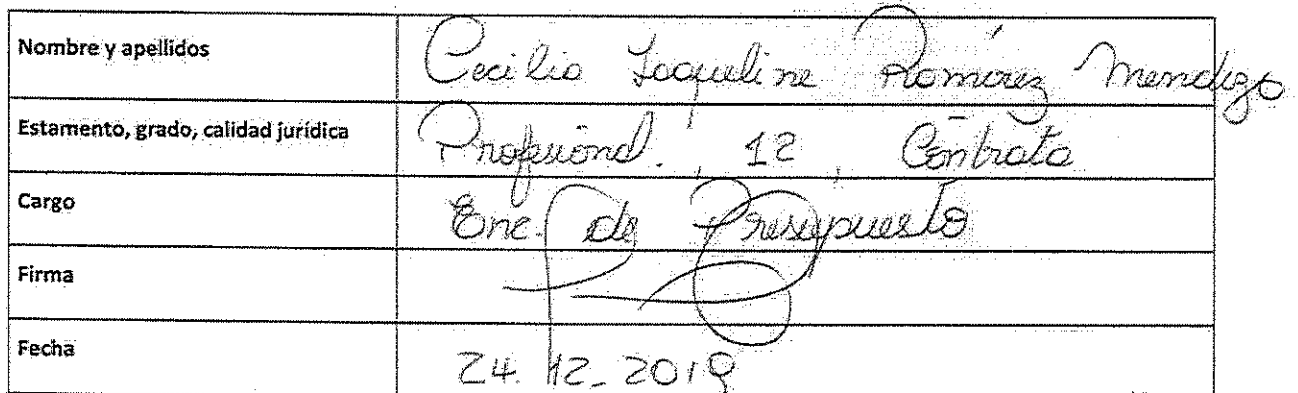 Nombre y apellidos Cecilia Jaqueline Ramírez Mendoza
Estamento, grado, calidad jurídica Profesional. , 12 , Contrata
Cargo Enc. de Presupuesto
Firma
Fecha 24.12-2019